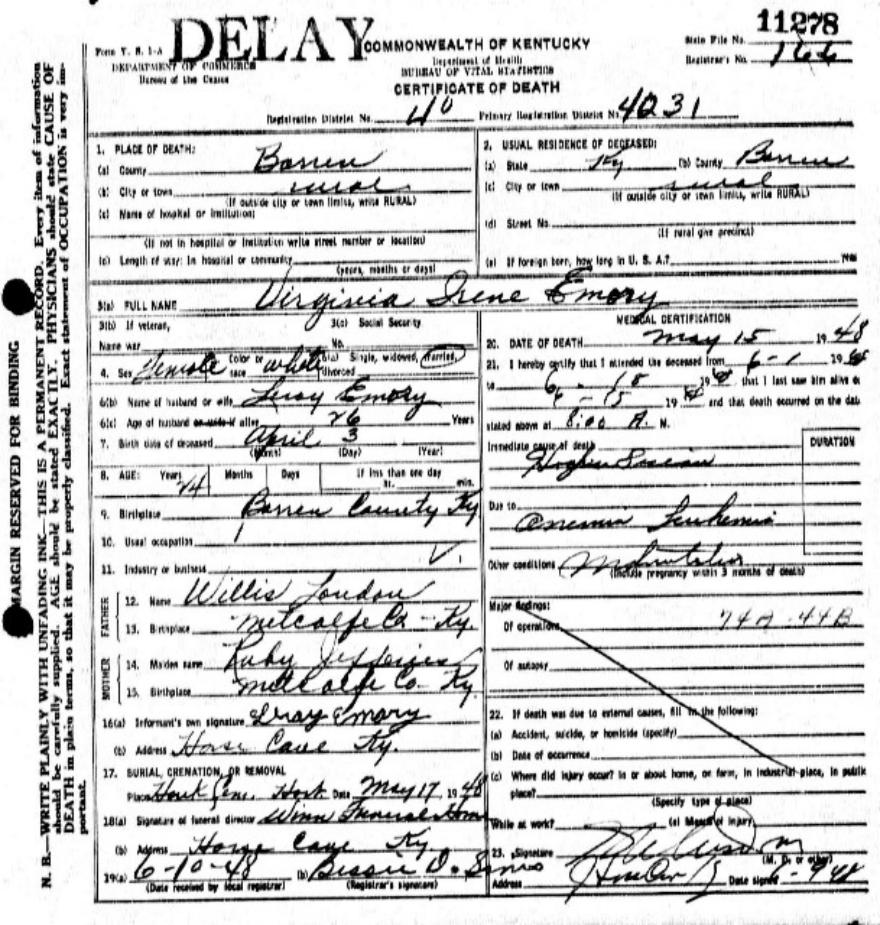 11278
Form V. S. 1-A DELAY COMMONWEALTH OF KENTUCKY State File No.
DEPARTMENT OF COMMERCE Department of Health Registrar's No. 166
Bureau of the Census BUREAU OF VITAL STATISTICS
CERTIFICATE OF DEATH
Registration District No. 40 Primary Registration District No. 4031
MARGIN RESERVED FOR BINDING
N. B.—WRITE PLAINLY WITH UNFADING INK—THIS IS A PERMANENT RECORD. Every item of information
should be carefully supplied. AGE should be stated EXACTLY. PHYSICIANS should state CAUSE OF
DEATH in plain terms, so that it may be properly classified. Exact statement of OCCUPATION is very im-
portant.
1. PLACE OF DEATH:
(a) County Barren
(b) City or town rural
(If outside city or town limits, write RURAL)
(c) Name of hospital or institution:
(If not in hospital or institution write street number or location)
Length of stay: In hospital or community
(years, months or days)
2. USUAL RESIDENCE OF DECEASED:
(a) State Ky (b) County Barren
(c) City or town rural
(If outside city or town limits, write RURAL)
(d) Street No.
(If rural give precinct)
(e) If foreign born, how long in U. S. A.? years
3(a) FULL NAME Virginia Irene Emory
3(b) If veteran, 3(c) Social Security
Name war No.
4. Sex Female Color or race white 6(a) Single, widowed, married, divorced
6(b) Name of husband or wife Leroy Emory
6(c) Age of husband or wife if alive 26 Years
7. Birth date of deceased April 3
(Month) (Day) (Year)
8. AGE: Years Months Days If less than one day
24 hr. min.
9. Birthplace Barren County Ky
10. Usual occupation
11. Industry or business
FATHER
12. Name Willis London
13. Birthplace Metcalfe Co - Ky.
MOTHER
14. Maiden name Ruby Jefferies
15. Birthplace Metcalfe Co - Ky.
16(a) Informant's own signature Leroy Emory
(b) Address Horse Cave Ky.
17. BURIAL, CREMATION, OR REMOVAL
Place Date May 17, 1948
18(a) Signature of funeral director Winn Funeral Home
(b) Address Horse Cave Ky
19(a) 6-10-48 (b) Bessie D. Sims
(Date received by local registrar) (Registrar's signature)
MEDICAL CERTIFICATION
20. DATE OF DEATH May 15 1948
21. I hereby certify that I attended the deceased from 6-1 19
to 19 that I last saw him alive on
19 and that death occurred on the date
stated above at 8:00 A. M.
Immediate cause of death DURATION
Due to
Leukemia
Other conditions
(Include pregnancy within 3 months of death)
Major findings:
Of operations 74A-44B
Of autopsy
22. If death was due to external causes, fill in the following:
(a) Accident, suicide, or homicide (specify)
(b) Date of occurrence
(c) Where did injury occur? In or about home, or farm, in industrial place, in public
place?
(Specify type of place)
While at work? (e) Means of injury
23. Signature
(M. D. or other)
Address Date signed 6-9-48